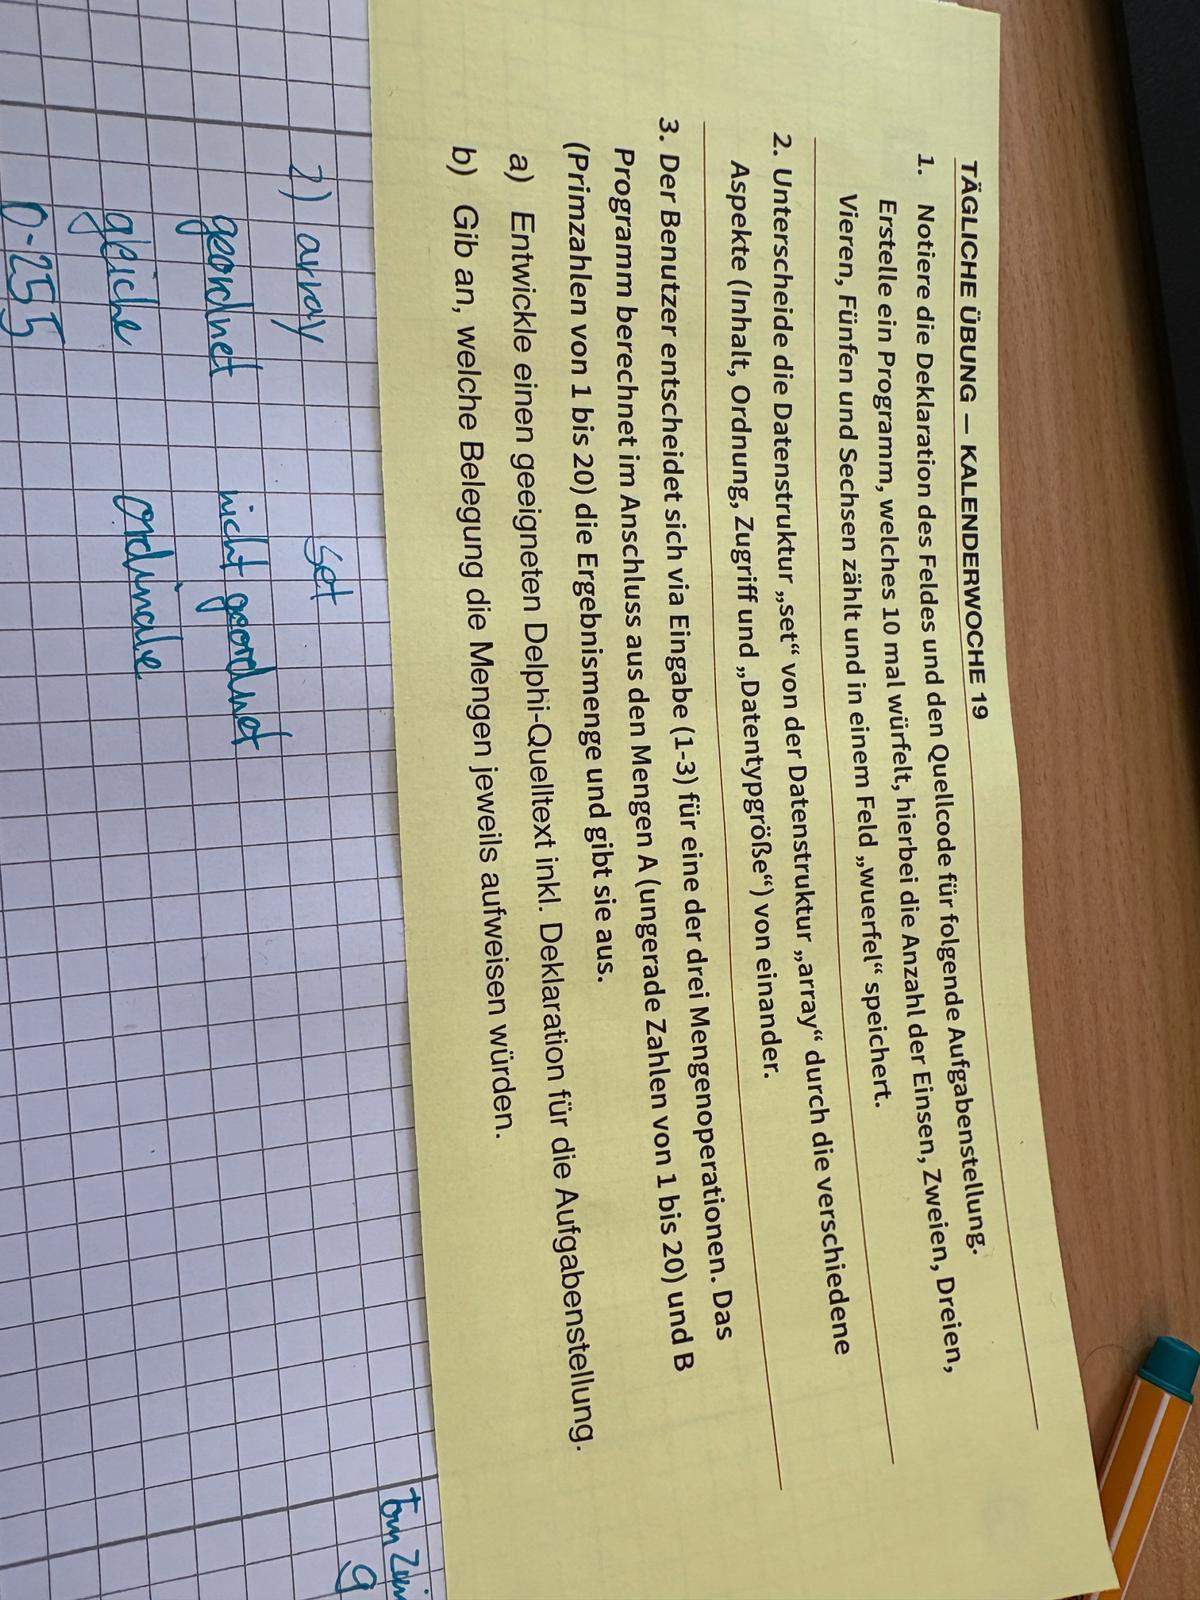 TÄGLICHE ÜBUNG – KALENDERWOCHE 19
1. Notiere die Deklaration des Feldes und den Quellcode für folgende Aufgabenstellung.
Erstelle ein Programm, welches 10 mal würfelt, hierbei die Anzahl der Einsen, Zweien, Dreien,
Vieren, Fünfen und Sechsen zählt und in einem Feld „wuerfel“ speichert.
2. Unterscheide die Datenstruktur „set“ von der Datenstruktur „array“ durch die verschiedene
Aspekte (Inhalt, Ordnung, Zugriff und „Datentypgröße“) von einander.
3. Der Benutzer entscheidet sich via Eingabe (1-3) für eine der drei Mengenoperationen. Das
Programm berechnet im Anschluss aus den Mengen A (ungerade Zahlen von 1 bis 20) und B
(Primzahlen von 1 bis 20) die Ergebnismenge und gibt sie aus.
a) Entwickle einen geeigneten Delphi-Quelltext inkl. Deklaration für die Aufgabenstellung.
b) Gib an, welche Belegung die Mengen jeweils aufweisen würden.
2) array set
geordnet nicht geordnet
gleiche ordinale
0-255